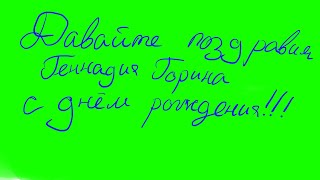 Давайте поздравим
Геннадия Горина
с днём рождения!!!